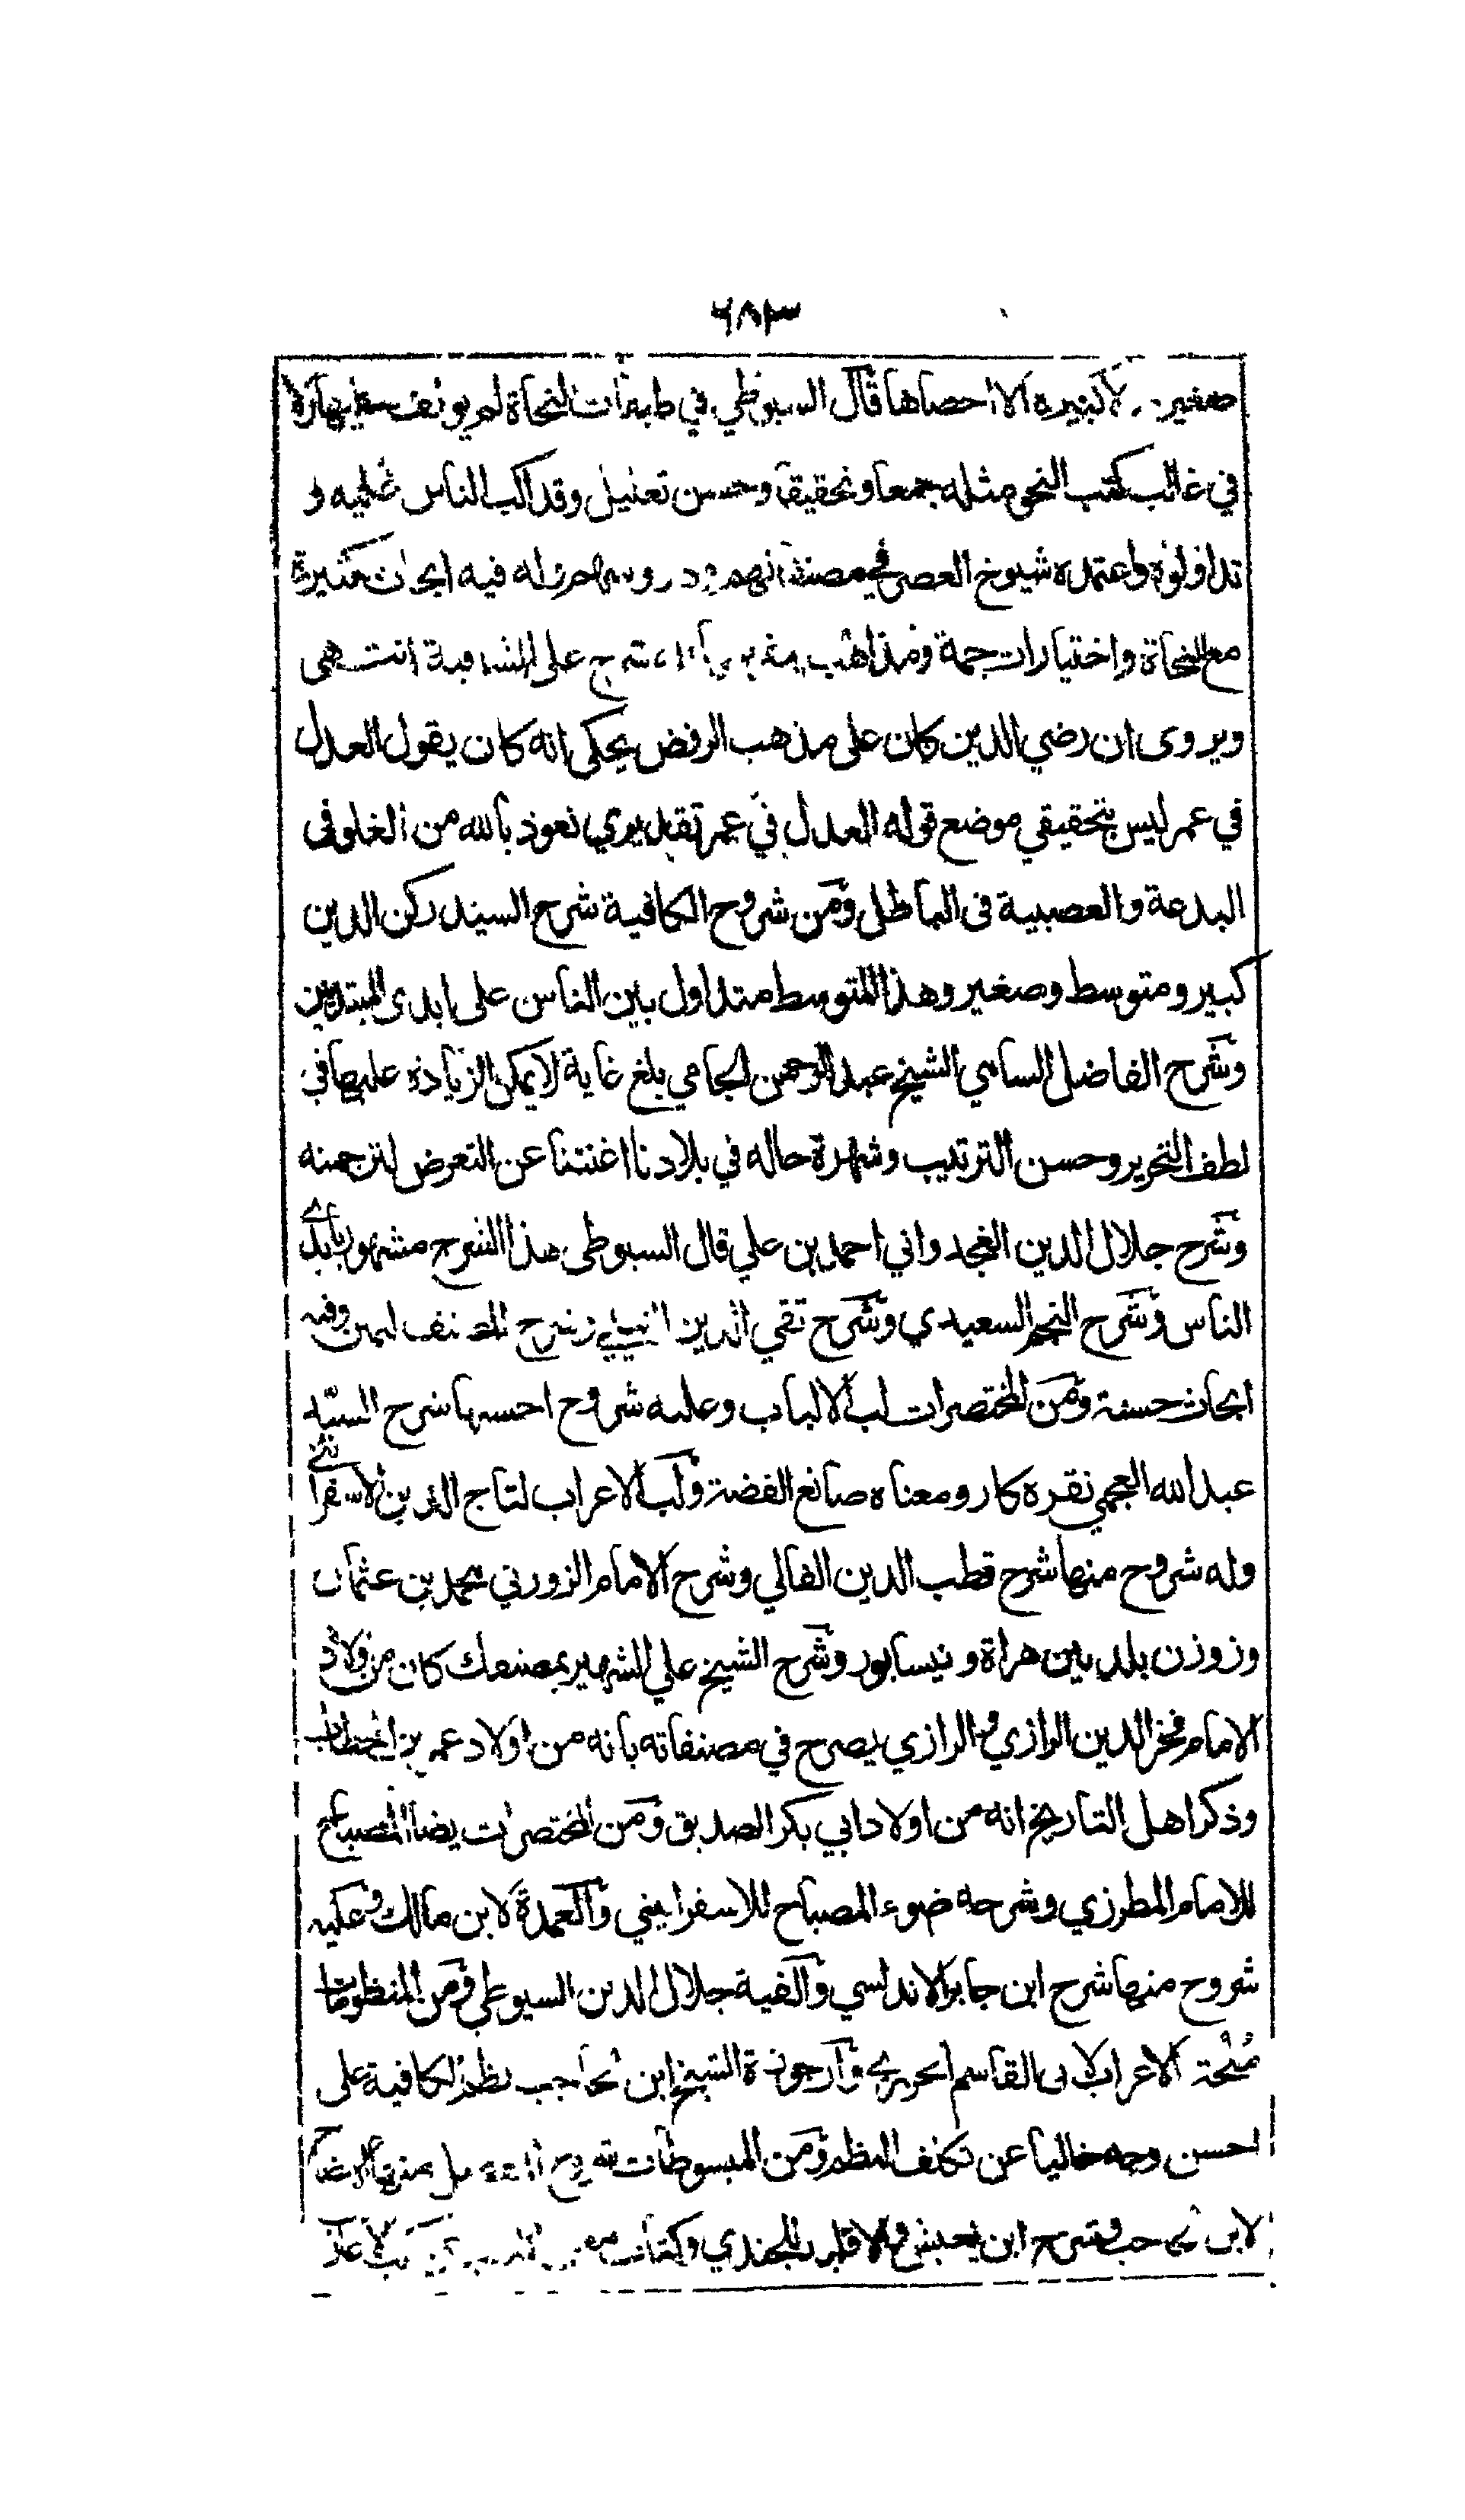 ٦٨٣
صغيرة ولا كبيرة الا احصاها قال السيوطي في طبقات النحاة لم يؤلف عليها بل
في غالب كتب النحو مثله جمعا وتحقيقا وحسن تعليل وقد اكب الناس عليه و
تداولوه واعتمده شيوخ العصر في مصنفاتهم ودروسهم وله فيه ابحاث كثيرة
مع النحاة واختيارات جمة ومذاهب شرح على الشافية انتهى
ويروى ان رضي الدين كان على مذهب الرفض يحكى انه كان يقول العدل
في عمر ليس بتحقيقي موضع قوله العدل في عمر تقديري نعوذ بالله من الغلو في
البدعة والعصبية في الباطل ومن شروح الكافية شرح السيد ركن الدين
كبير ومتوسط وصغير وهذا المتوسط متداول بين الناس على ايدى المبتدئين
وشرح الفاضل السامي الشيخ عبد الرحمن الجامي بلغ غاية لا يمكن الزيادة عليها في
لطف التحرير وحسن الترتيب وشهرة حاله في بلادنا اغنتنا عن التعرض لترجمته
وشرح جلال الدين الغجدواني احمد بن علي قال السيوطي هذا الشرح مشهور بايدي
الناس وشرح النجم السعيدي وشرح تقي الدين النيلي وشرح المصنف وفيه
ابحاث حسنة ومن المختصرات لب الالباب وعليه شروح احسنها شرح السيد
عبد الله العجمي نقره كار ومعناه صانع الفضة ولب الاعراب لتاج الدين الاسفرائني
وله شروح منها شرح قطب الدين الفالي وشرح الامام الزوزني محمد بن عثمان
وزوزن بلد بين هراة ونيسابور وشرح الشيخ علي الشهير بمصنفك كان من اولاد
الامام فخر الدين الرازي والرازي يصرح في مصنفاته بانه من اولاد عمر بن الخطاب
وذكر اهل التاريخ انه من اولاد ابي بكر الصديق ومن المختصرات ايضا المصباح
للامام المطرزي وشرحه ضوء المصباح للاسفرايني والعمدة لابن مالك وعليه
شروح منها شرح ابن جابر الاندلسي والفية جلال الدين السيوطي ومن المنظومات
ملحة الاعراب لابي القاسم الحريري وارجوزة الشيخ ابن الحاجب نظم الكافية على
احسن وجه خاليا عن تكلف النظم ومن المبسوطات شروح المفصل منها الايضاح
لابن الحاجب وشرح ابن يعيش والاقليد للجندي وكتاب